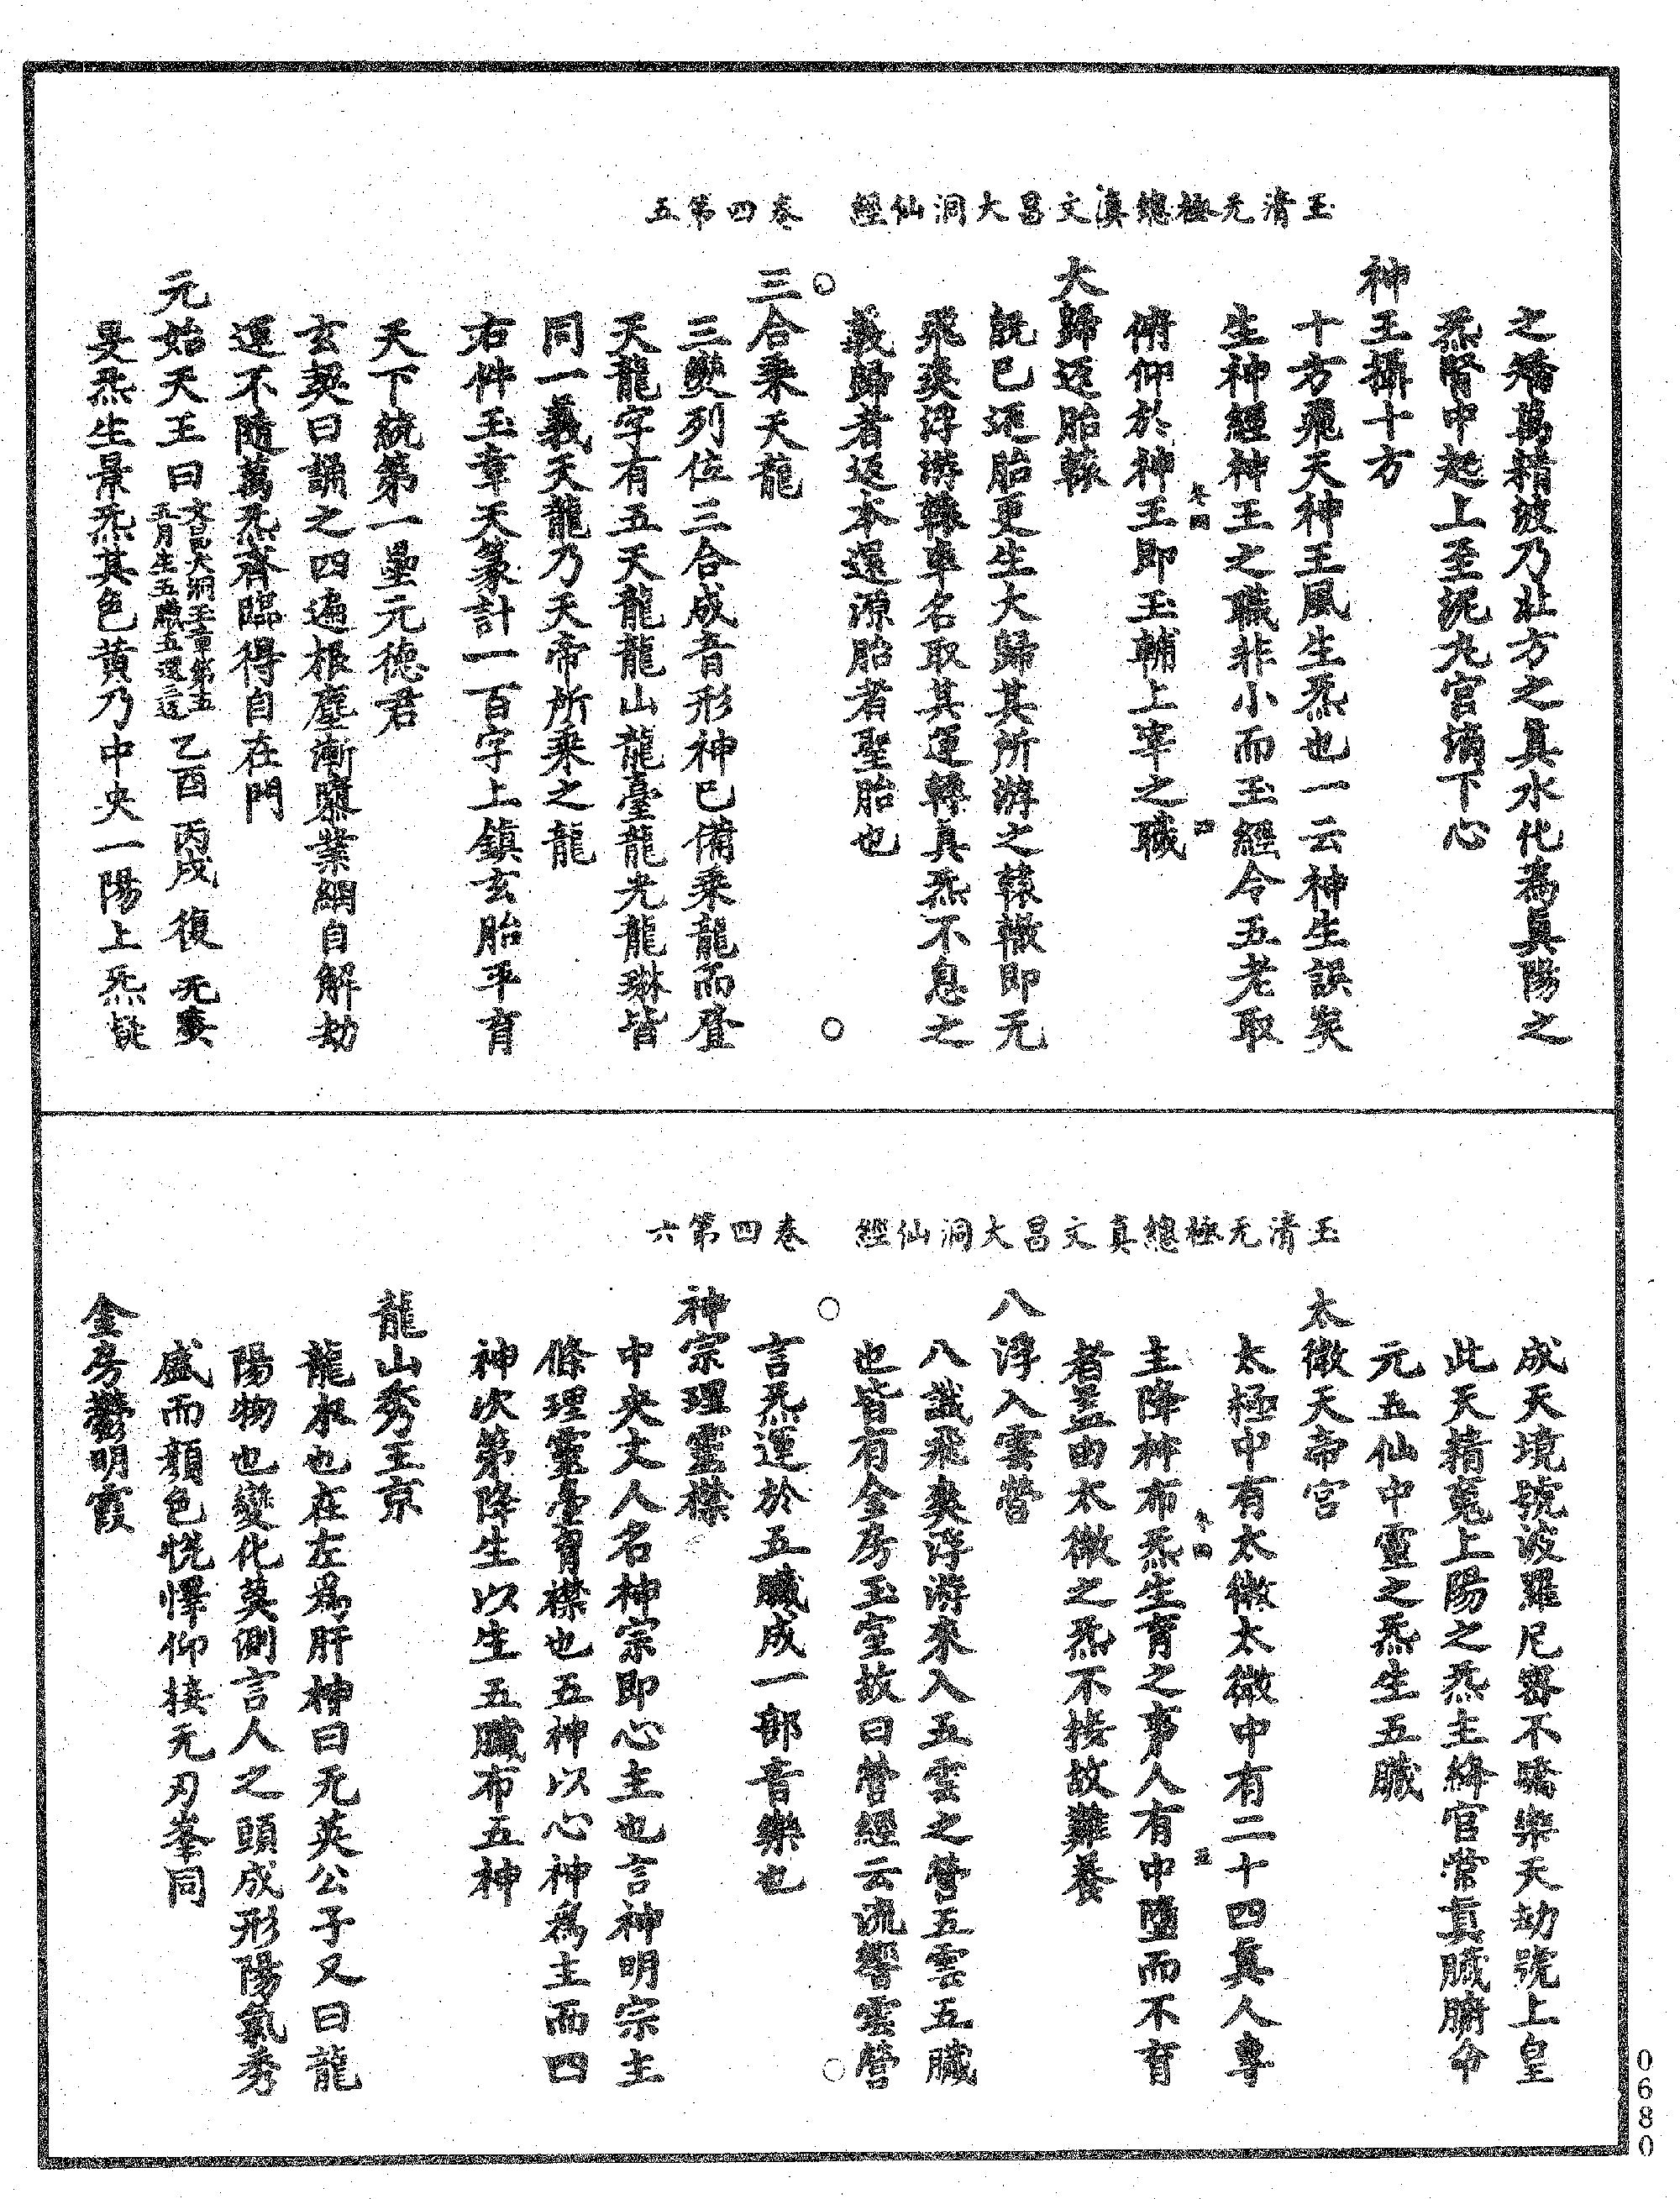 玉清无極總真文昌大洞仙經　卷四第五
之矯萬精波乃壯方之真水化為真陽之
炁腎中起上至泥丸宮滴下心
神王攝十方
十方飛天神王風生炁也一云神生誤矣
生神經神王之職非小而玉經令五老取
俯仰於神王即玉輔上宰之職
大歸返胎轅
既已返胎更生大歸其所游之轅轍即元
飛爽浮游轅車名取其運轉真炁不息之
義歸者返本還源胎者聖胎也
三合乘天龍
三變列位三合成音形神已備乘龍而登
天龍字有五天龍龍山龍臺龍光龍琳皆
同一義天龍乃天帝所乘之龍
右件玉章天篆計一百字上鎮玄胎平育
天下統第一皇元德君
玄契曰誦之四遍根塵漸隳業網自解劫
運不隨萬炁齊臨得自在門
元始天王曰文昌大洞玉章第五五月生五臟五遍言乙酉 丙戌 復 无爽
旻炁生景炁其色黃乃中央一陽上炁凝
玉清无極總真文昌大洞仙經　卷四第六
成天境號波羅尼密不驕樂天劫號上皇
此天精冕上陽之炁主絳宮常真臟腑命
元五仙中靈之炁生五臟
太微天帝宮
太極中有太微太微中有二十四真人專
主降神布炁生育之事人有中墮而不育
者蓋由太微之炁不接故難養
八浮入雲營
八識飛爽浮游來入五雲之營五雲五臟
也皆有金房玉室故曰營經云流響雲營
言炁運於五臟成一部音樂也
神宗理靈襟
中央丈人名神宗即心主也言神明宗主
條理靈臺育襟也五神以心神為主而四
神次第降生以生五臟布五神
龍山秀玉京
龍木也在左為肝神曰无英公子又曰龍
陽物也變化莫測言人之頭成形陽氣秀
盛而顏色悅懌仰接无刃峯同
金房鬱明霞
0680